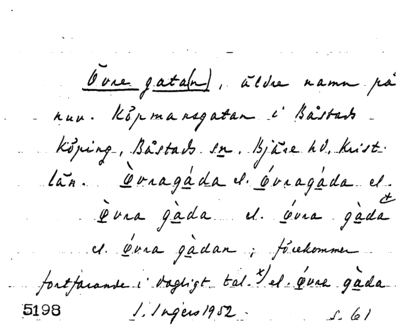 Övre gata(n), äldre namn på
nuv. Köpmansgatan i Båstads
köping, Båstads sn, Bjäre hd, Krist.
län. Övragáda el. Óvragáda el.
Övra gàda el. Óvra gàda
el. Óvra gàdan; förekommer
fortfarande i dagligt tal. x) el. Övre gàda
5198 I. Ingers 1952. s. 61